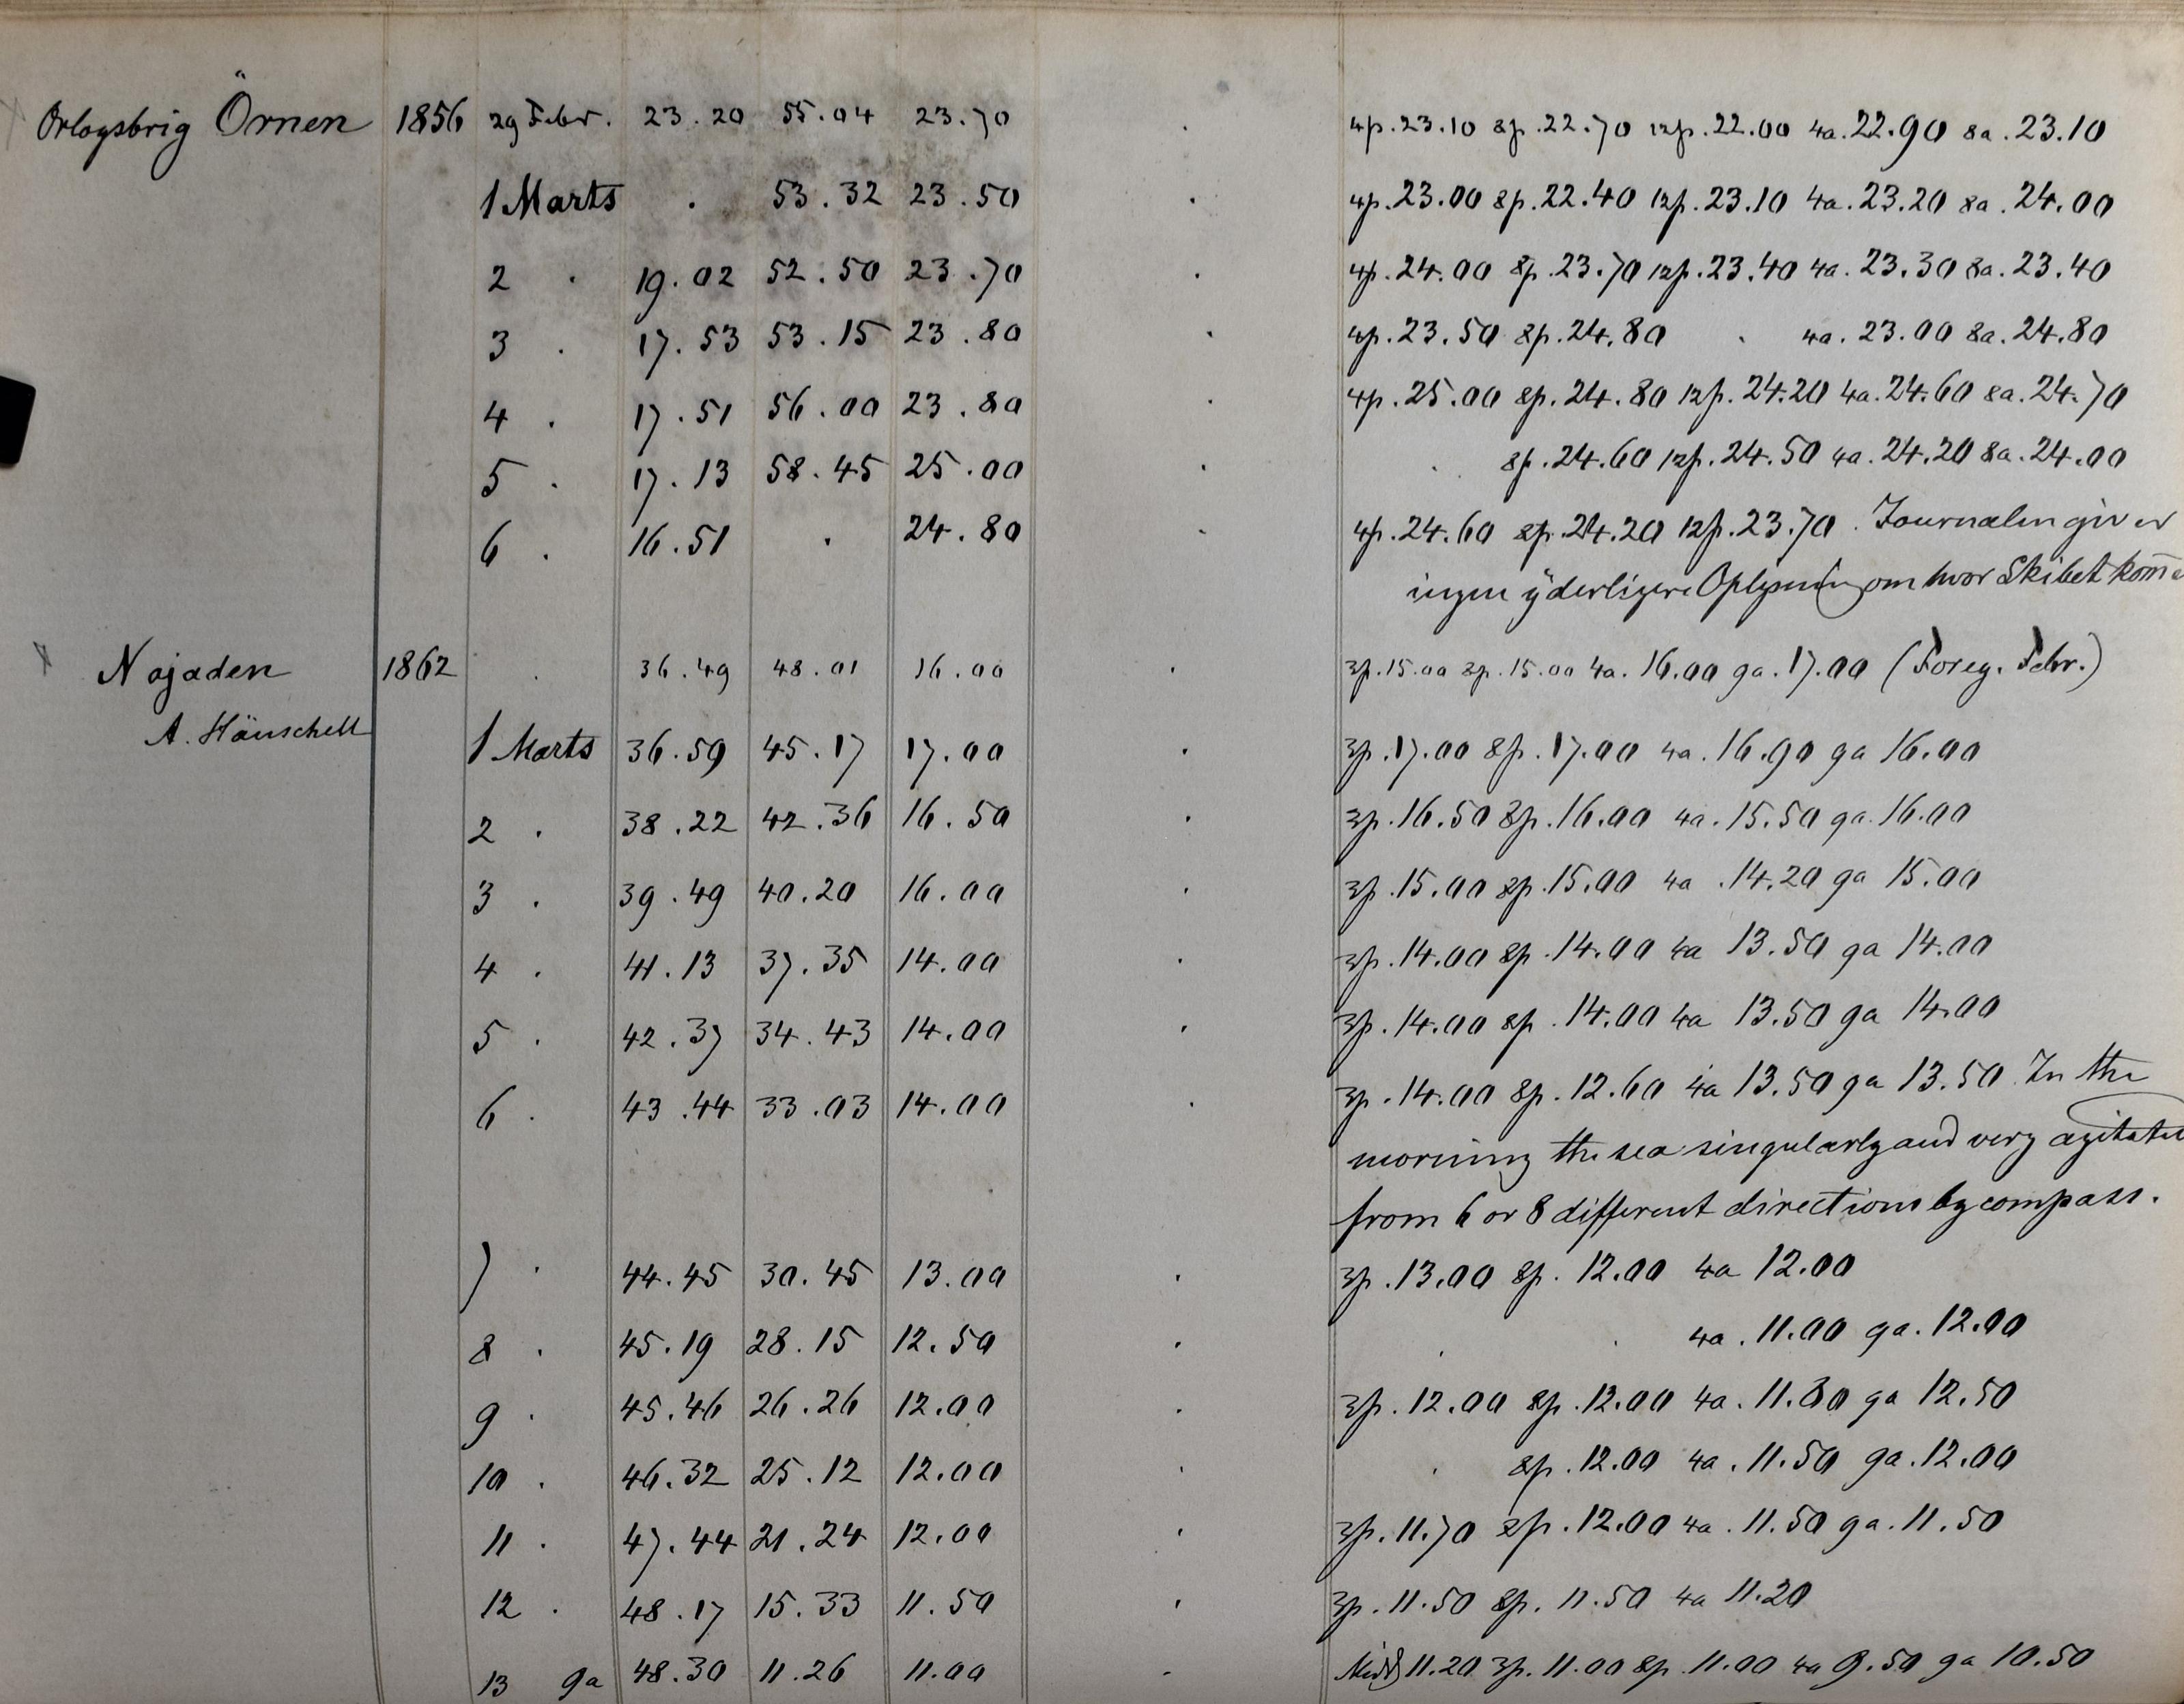 Orlogsbrig Örnen 1856 29 Febr. 23.20 55.04 23.70 . 4p.23.10 8p.22.70 12p.22.00 4a.22.90 8a.23.10
1 Marts . 53.32 23.50 . 4p.23.00 8p.22.40 12p.23.10 4a.23.20 8a.24.00
2 . 19.02 52.50 23.70 . 4p.24.00 8p.23.70 12p.23.40 4a.23.30 8a.23.40
3 . 17.53 53.15 23.80 . 4p.23.50 8p.24.80 . 4a.23.00 8a.24.80
4 . 17.51 56.00 23.80 . 4p.25.00 8p.24.80 12p.24.20 4a.24.60 8a.24.70
5 . 17.13 58.45 25.00 . . 8p.24.60 12p.24.50 4a.24.20 8a.24.00
6 . 16.51 . 24.80 . 4p.24.60 8p.24.20 12p.23.70. Journalen giver
ingen yderligere Oplysning om hvor Skibet kom̄
Najaden 1862 . 36.49 48.01 16.00 . 3p.15.00 8p.15.00 4a.16.00 9a.17.00 (Foreg. Febr.)
A. Hänschell
1 Marts 36.59 45.17 17.00 . 3p.17.00 8p.17.00 4a.16.90 9a 16.00
2 . 38.22 42.36 16.50 . 3p.16.50 8p.16.00 4a.15.50 9a.16.00
3 . 39.49 40.20 16.00 . 3p.15.00 8p.15.00 4a.14.20 9a 15.00
4 . 41.13 37.35 14.00 . 3p.14.00 8p.14.00 4a 13.50 9a 14.00
5 . 42.37 34.43 14.00 . 3p.14.00 8p.14.00 4a 13.50 9a 14.00
6 . 43.44 33.03 14.00 . 3p.14.00 8p.12.60 4a 13.50 9a 13.50 In the
morning the sea singularly and very agitated
from 6 or 8 different directions by compass.
7 . 44.45 30.45 13.00 . 3p.13.00 8p.12.00 4a 12.00
8 . 45.19 28.15 12.50 . . . 4a.11.00 9a.12.00
9 . 45.46 26.26 12.00 . 3p.12.00 8p.12.00 4a.11.80 9a 12.50
10 . 46.32 25.12 12.00 . . 8p.12.00 4a.11.50 9a.12.00
11 . 47.44 21.24 12.00 . 3p.11.70 8p.12.00 4a.11.50 9a.11.50
12 . 48.17 15.33 11.50 . 3p.11.50 8p.11.50 4a 11.20
13 9a 48.30 11.26 11.00 . Midd 11.20 3p.11.00 8p.11.00 4a 9.50 9a 10.50